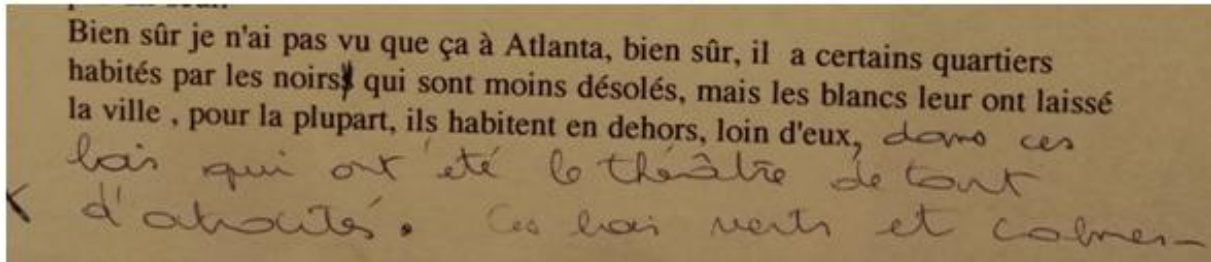 Bien sûr je n'ai pas vu que ça à Atlanta, bien sûr, il a certains quartiers
habités par les noirs qui sont moins désolés, mais les blancs leur ont laissé
la ville , pour la plupart, ils habitent en dehors, loin d'eux, dans ces
bois qui ont été le théâtre de tant
d'atrocités. Ces bois verts et calmes-